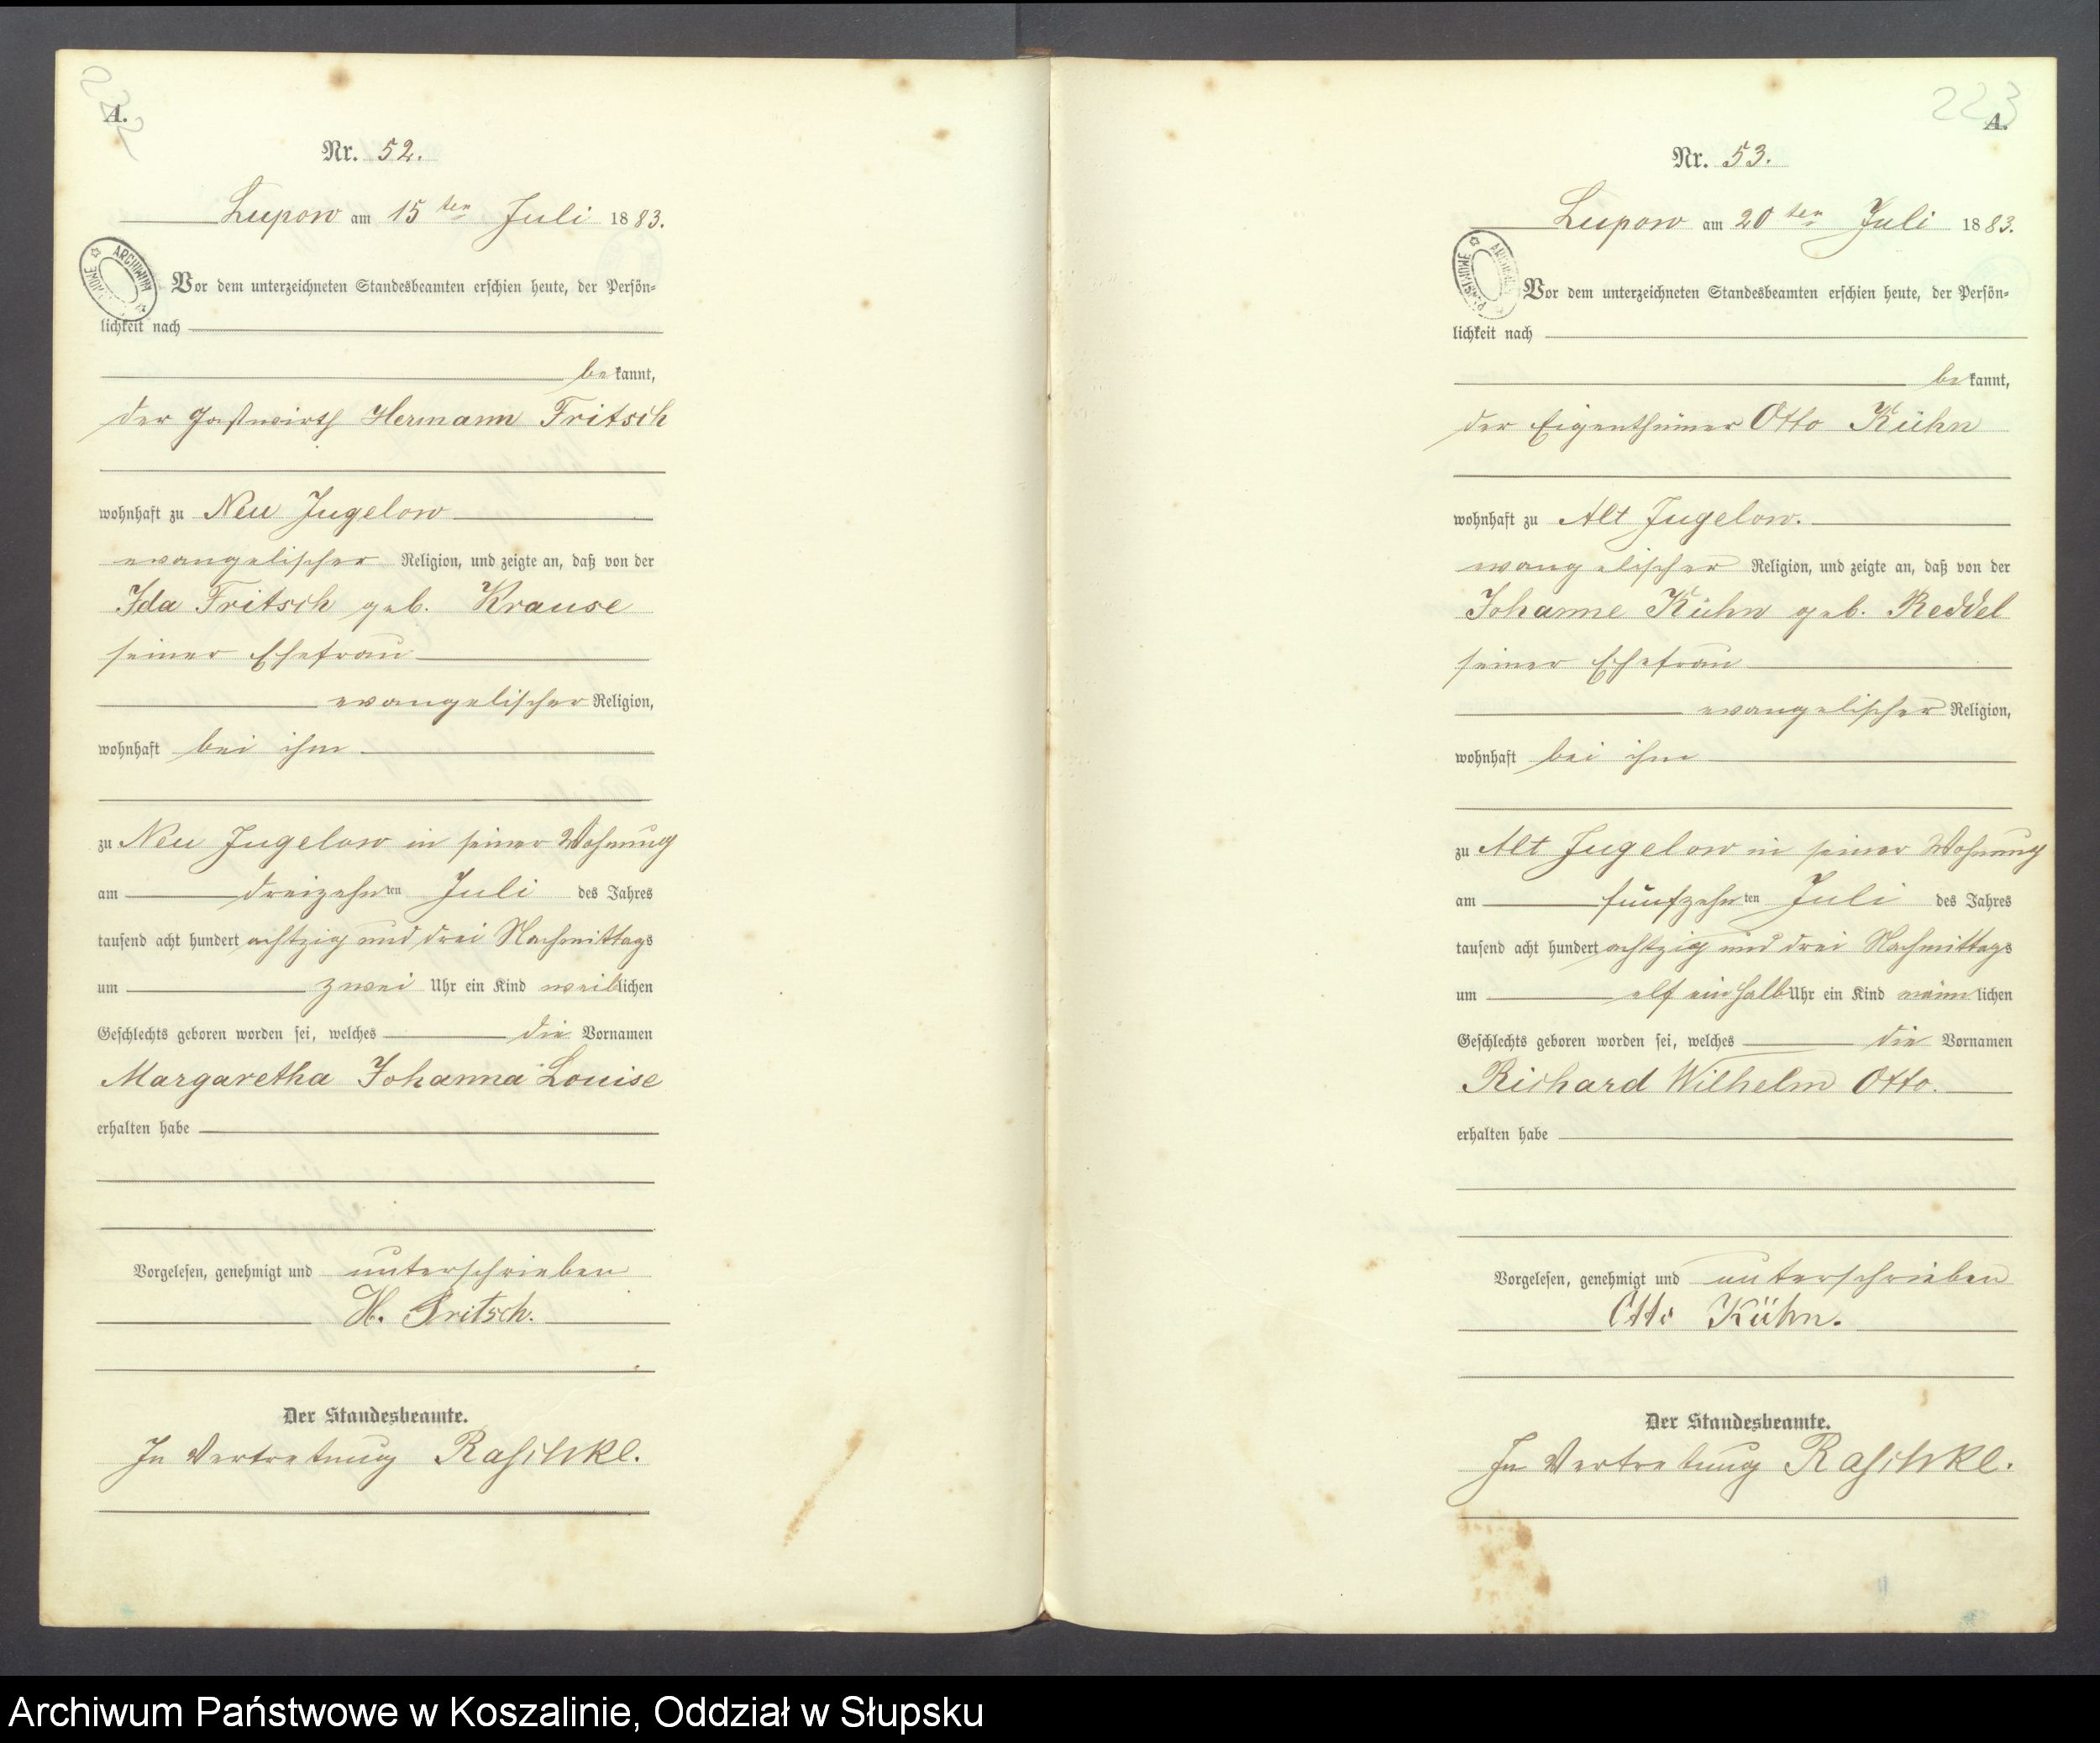 222
A.
Nr. 52.
Lupow am 15ten Juli 1883.
ARCHIWUM
Vor dem unterzeichneten Standesbeamten erschien heute, der Persön-
lichkeit nach
bekannt,
der Gastwirth Hermann Fritsch
wohnhaft zu Neu Jugelow
evangelischer Religion, und zeigte an, daß von der
Ida Fritsch geb. Krause
seiner Ehefrau
evangelischer Religion,
wohnhaft bei ihm
zu Neu Jugelow in seiner Wohnung
am dreizehnten Juli des Jahres
tausend acht hundert achtzig und drei Nachmittags
um zwei Uhr ein Kind weiblichen
Geschlechts geboren worden sei, welches die Vornamen
Margaretha Johanna Louise
erhalten habe
Vorgelesen, genehmigt und unterschrieben
H. Fritsch.
Der Standesbeamte.
In Vertretung Raschke.
223
A.
Nr. 53.
Lupow am 20ten Juli 1883.
Vor dem unterzeichneten Standesbeamten erschien heute, der Persön-
lichkeit nach
bekannt,
der Eigenthümer Otto Kühn
wohnhaft zu Alt Jugelow.
evangelischer Religion, und zeigte an, daß von der
Johanne Kühn geb. Reddel
seiner Ehefrau
evangelischer Religion,
wohnhaft bei ihm
zu Alt Jugelow in seiner Wohnung
am fünfzehnten Juli des Jahres
tausend acht hundert achtzig und drei Nachmittags
um elf ein halb Uhr ein Kind männlichen
Geschlechts geboren worden sei, welches die Vornamen
Richard Wilhelm Otto.
erhalten habe
Vorgelesen, genehmigt und unterschrieben
Otto Kühn.
Der Standesbeamte.
In Vertretung Raschke.
Archiwum Państwowe w Koszalinie, Oddział w Słupsku